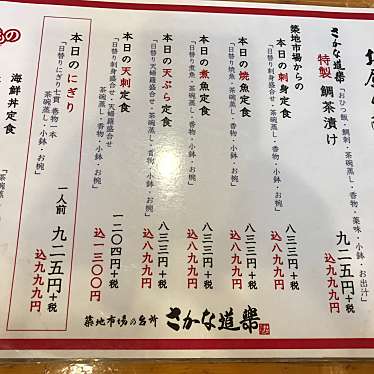 さかな道樂
特製 鯛茶漬け
「おひつ飯・鯛刺・茶碗蒸し・香物・薬味・小鉢・お出汁」
九二五円+税
込九九九円
築地市場からの
本日の刺身定食
「日替り刺身盛合せ・茶碗蒸し・香物・小鉢・お椀」
八三三円+税
込八九九円
本日の焼魚定食
「日替り焼魚・茶碗蒸し・香物・小鉢・お椀」
八三三円+税
込八九九円
本日の煮魚定食
「日替り煮魚・茶碗蒸し・香物・小鉢・お椀」
八三三円+税
込八九九円
本日の天ぷら定食
「日替り天婦羅盛合せ・茶碗蒸し・香物・小鉢・お椀」
八三三円+税
込八九九円
本日の天刺定食
「日替り刺身盛合せ・天婦羅盛合せ・茶碗蒸し・香物・小鉢・お椀」
一二〇四円+税
込一三〇〇円
本日のにぎり
「日替りにぎり七貫 巻物一本
茶碗蒸し・小鉢・お椀」
一人前 九二五円+税
込九九九円
の
海鮮丼定食
「茶碗蒸し
築地市場の名所 さかな道樂